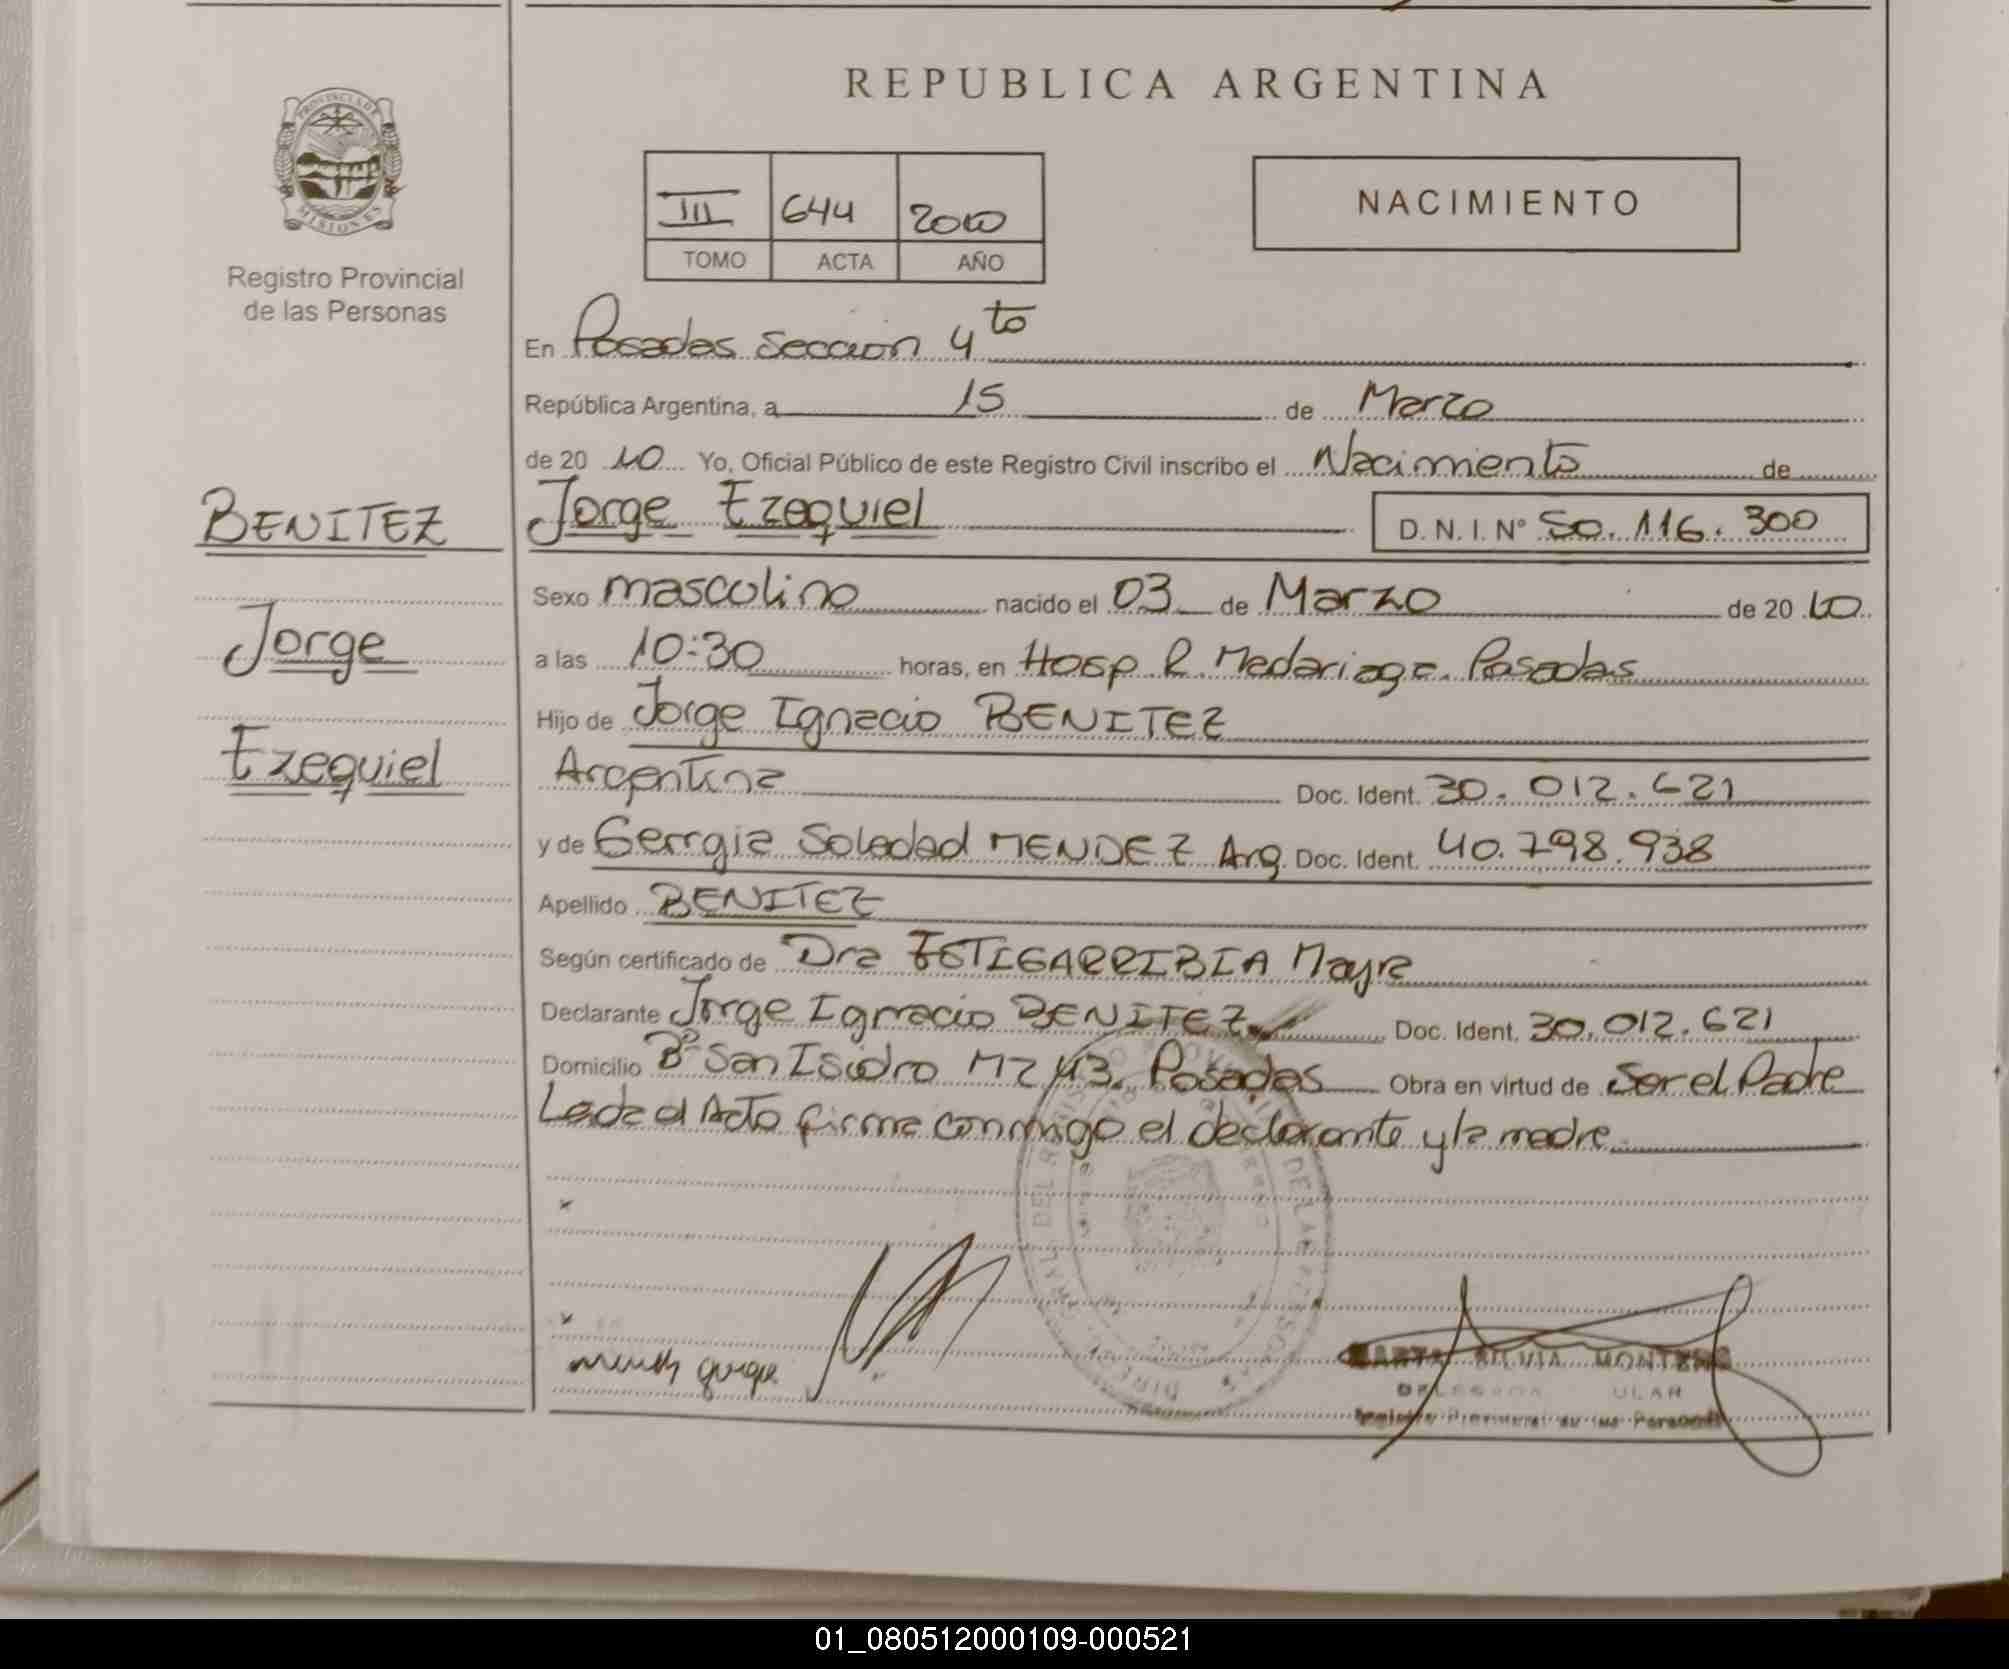 REPUBLICA ARGENTINA
PROVINCIA DE
MISIONES
Registro Provincial
de las Personas
III 644 2010
TOMO ACTA AÑO
NACIMIENTO
En Posadas Sección 4to
República Argentina, a 15 de Marzo
de 20 10 Yo, Oficial Público de este Registro Civil inscribo el Nacimiento de
BENITEZ
Jorge
Ezequiel
Jorge Ezequiel D.N.I. N° 50.116.300
Sexo masculino nacido el 03 de Marzo de 20 10
a las 10:30 horas, en Hosp R. Madariaga. Posadas
Hijo de Jorge Ignacio BENITEZ
Argentina Doc. Ident. 30.012.621
y de Soledad MENDEZ Arg. Doc. Ident. 40.798.938
Apellido BENITEZ
Según certificado de Dra ESTIGARRIBIA Mayra
Declarante Jorge Ignacio BENITEZ Doc. Ident. 30.012.621
Domicilio B° San Isidro MZ 43. Posadas Obra en virtud de Ser el Padre
Leida el Acto firma conmigo el declarante y la madre
MARTA SILVIA MONTERO
Registro Provincial de las Personas
01_080512000109-000521